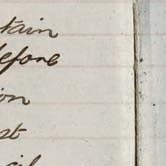 tain
before
ion
st